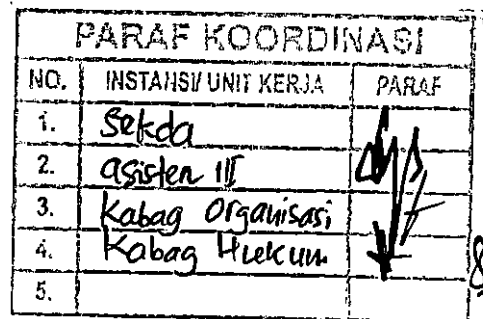 PARAF KOORDINASI
NO. INSTANSI/ UNIT KERJA PARAF
1. Sekda
2. asisten III
3. Kabag Organisasi
4. Kabag Hukum
5.